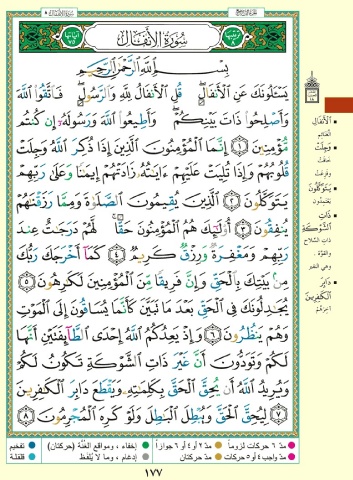 سُورَةُ الأَنْفَالِ
بِسْمِ ٱللَّهِ ٱلرَّحْمَٰنِ ٱلرَّحِيمِ
يَسْـَٔلُونَكَ عَنِ ٱلْأَنفَالِ ۖ قُلِ ٱلْأَنفَالُ لِلَّهِ وَٱلرَّسُولِ ۖ فَٱتَّقُوا۟ ٱللَّهَ
وَأَصْلِحُوا۟ ذَاتَ بَيْنِكُمْ ۖ وَأَطِيعُوا۟ ٱللَّهَ وَرَسُولَهُۥٓ إِن كُنتُم
مُّؤْمِنِينَ ﴿١﴾ إِنَّمَا ٱلْمُؤْمِنُونَ ٱلَّذِينَ إِذَا ذُكِرَ ٱللَّهُ وَجِلَتْ
قُلُوبُهُمْ وَإِذَا تُلِيَتْ عَلَيْهِمْ ءَايَٰتُهُۥ زَادَتْهُمْ إِيمَٰنًا وَعَلَىٰ رَبِّهِمْ
يَتَوَكَّلُونَ ﴿٢﴾ ٱلَّذِينَ يُقِيمُونَ ٱلصَّلَوٰةَ وَمِمَّا رَزَقْنَٰهُمْ
يُنفِقُونَ ﴿٣﴾ أُو۟لَٰٓئِكَ هُمُ ٱلْمُؤْمِنُونَ حَقًّا ۚ لَّهُمْ دَرَجَٰتٌ عِندَ
رَبِّهِمْ وَمَغْفِرَةٌ وَرِزْقٌ كَرِيمٌ ﴿٤﴾ كَمَآ أَخْرَجَكَ رَبُّكَ
مِنۢ بَيْتِكَ بِٱلْحَقِّ وَإِنَّ فَرِيقًا مِّنَ ٱلْمُؤْمِنِينَ لَكَٰرِهُونَ ﴿٥﴾
يُجَٰدِلُونَكَ فِى ٱلْحَقِّ بَعْدَ مَا تَبَيَّنَ كَأَنَّمَا يُسَاقُونَ إِلَى ٱلْمَوْتِ
وَهُمْ يَنظُرُونَ ﴿٦﴾ وَإِذْ يَعِدُكُمُ ٱللَّهُ إِحْدَى ٱلطَّآئِفَتَيْنِ أَنَّهَا
لَكُمْ وَتَوَدُّونَ أَنَّ غَيْرَ ذَاتِ ٱلشَّوْكَةِ تَكُونُ لَكُمْ
وَيُرِيدُ ٱللَّهُ أَن يُحِقَّ ٱلْحَقَّ بِكَلِمَٰتِهِۦ وَيَقْطَعَ دَابِرَ ٱلْكَٰفِرِينَ
﴿٧﴾ لِيُحِقَّ ٱلْحَقَّ وَيُبْطِلَ ٱلْبَٰطِلَ وَلَوْ كَرِهَ ٱلْمُجْرِمُونَ ﴿٨﴾
الأَنْفَالِ
الغنائم
وَجِلَتْ
يَتَوَكَّلُونَ
يعتمدون
ذَاتِ
الشَّوْكَةِ
ذات السلاح
والقوّة
وهي النفير
دَابِرَ
الْكَافِرِينَ
آخرهم
مدّ ٦ حركات لزوماً
مدّ ٢ أو ٤ أو ٦ جوازاً
إخفاء، ومواقع الغُنَّة (حركتان)
تفخيم
مدّ واجب ٤ أو ٥ حركات
مدّ حركتان
إدغام، وما لا يُلفَظ
قلقلة
١٧٧